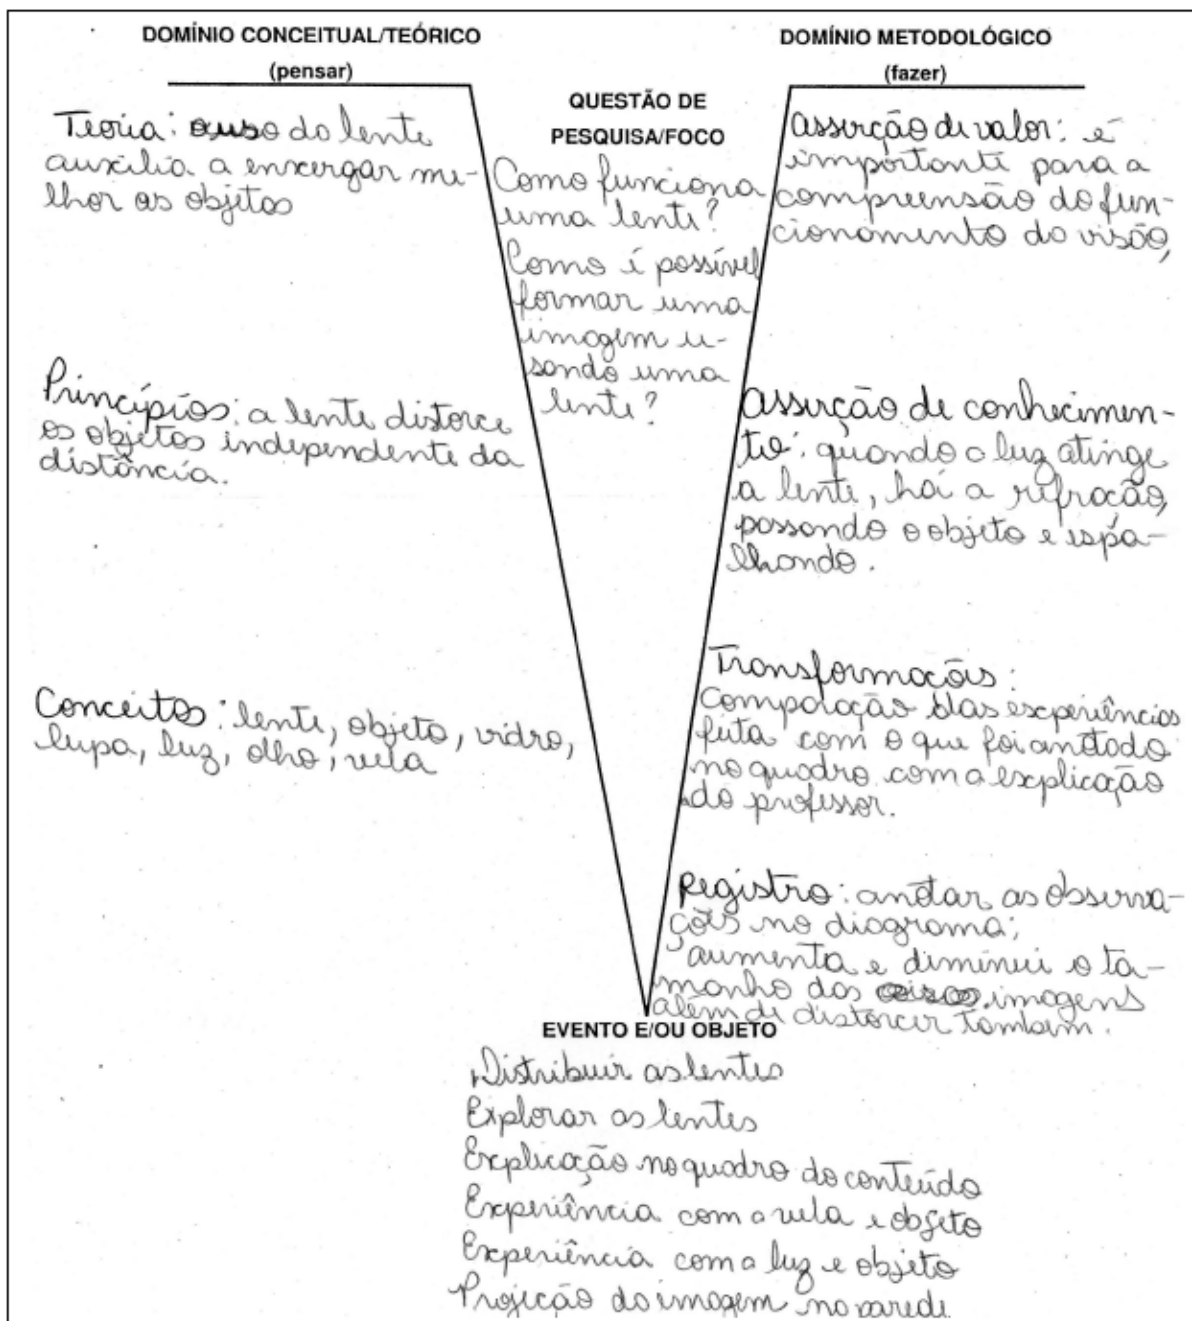 DOMÍNIO CONCEITUAL/TEÓRICO
(pensar)
Teoria: o uso da lente
auxilia a enxergar me-
lhor os objetos
Princípios: a lente distorce
os objetos independente da
distância.
Conceitos: lente, objeto, vidro,
lupa, luz, olho, vela
QUESTÃO DE
PESQUISA/FOCO
Como funciona
uma lente?
Como é possível
formar uma
imagem u-
sando uma
lente?
DOMÍNIO METODOLÓGICO
(fazer)
Asserção de valor: é
importante para a
compreensão do fun-
cionamento da visão,
Asserção de conhecimen-
to: quando a luz atinge
a lente, há a refração,
passando o objeto e espa-
lhando.
Transformações:
Comparação das experiências
feita com o que foi anotado
no quadro com a explicação
do professor.
Registro: anotar as observa-
ções no diagrama;
aumenta e diminui o ta-
manho das imagens
além de distorcer também.
EVENTO E/OU OBJETO
Distribuir as lentes
Explorar as lentes
Explicação no quadro do conteúdo
Experiência com a vela e objeto
Experiência com a luz e objeto
Projeção da imagem na parede